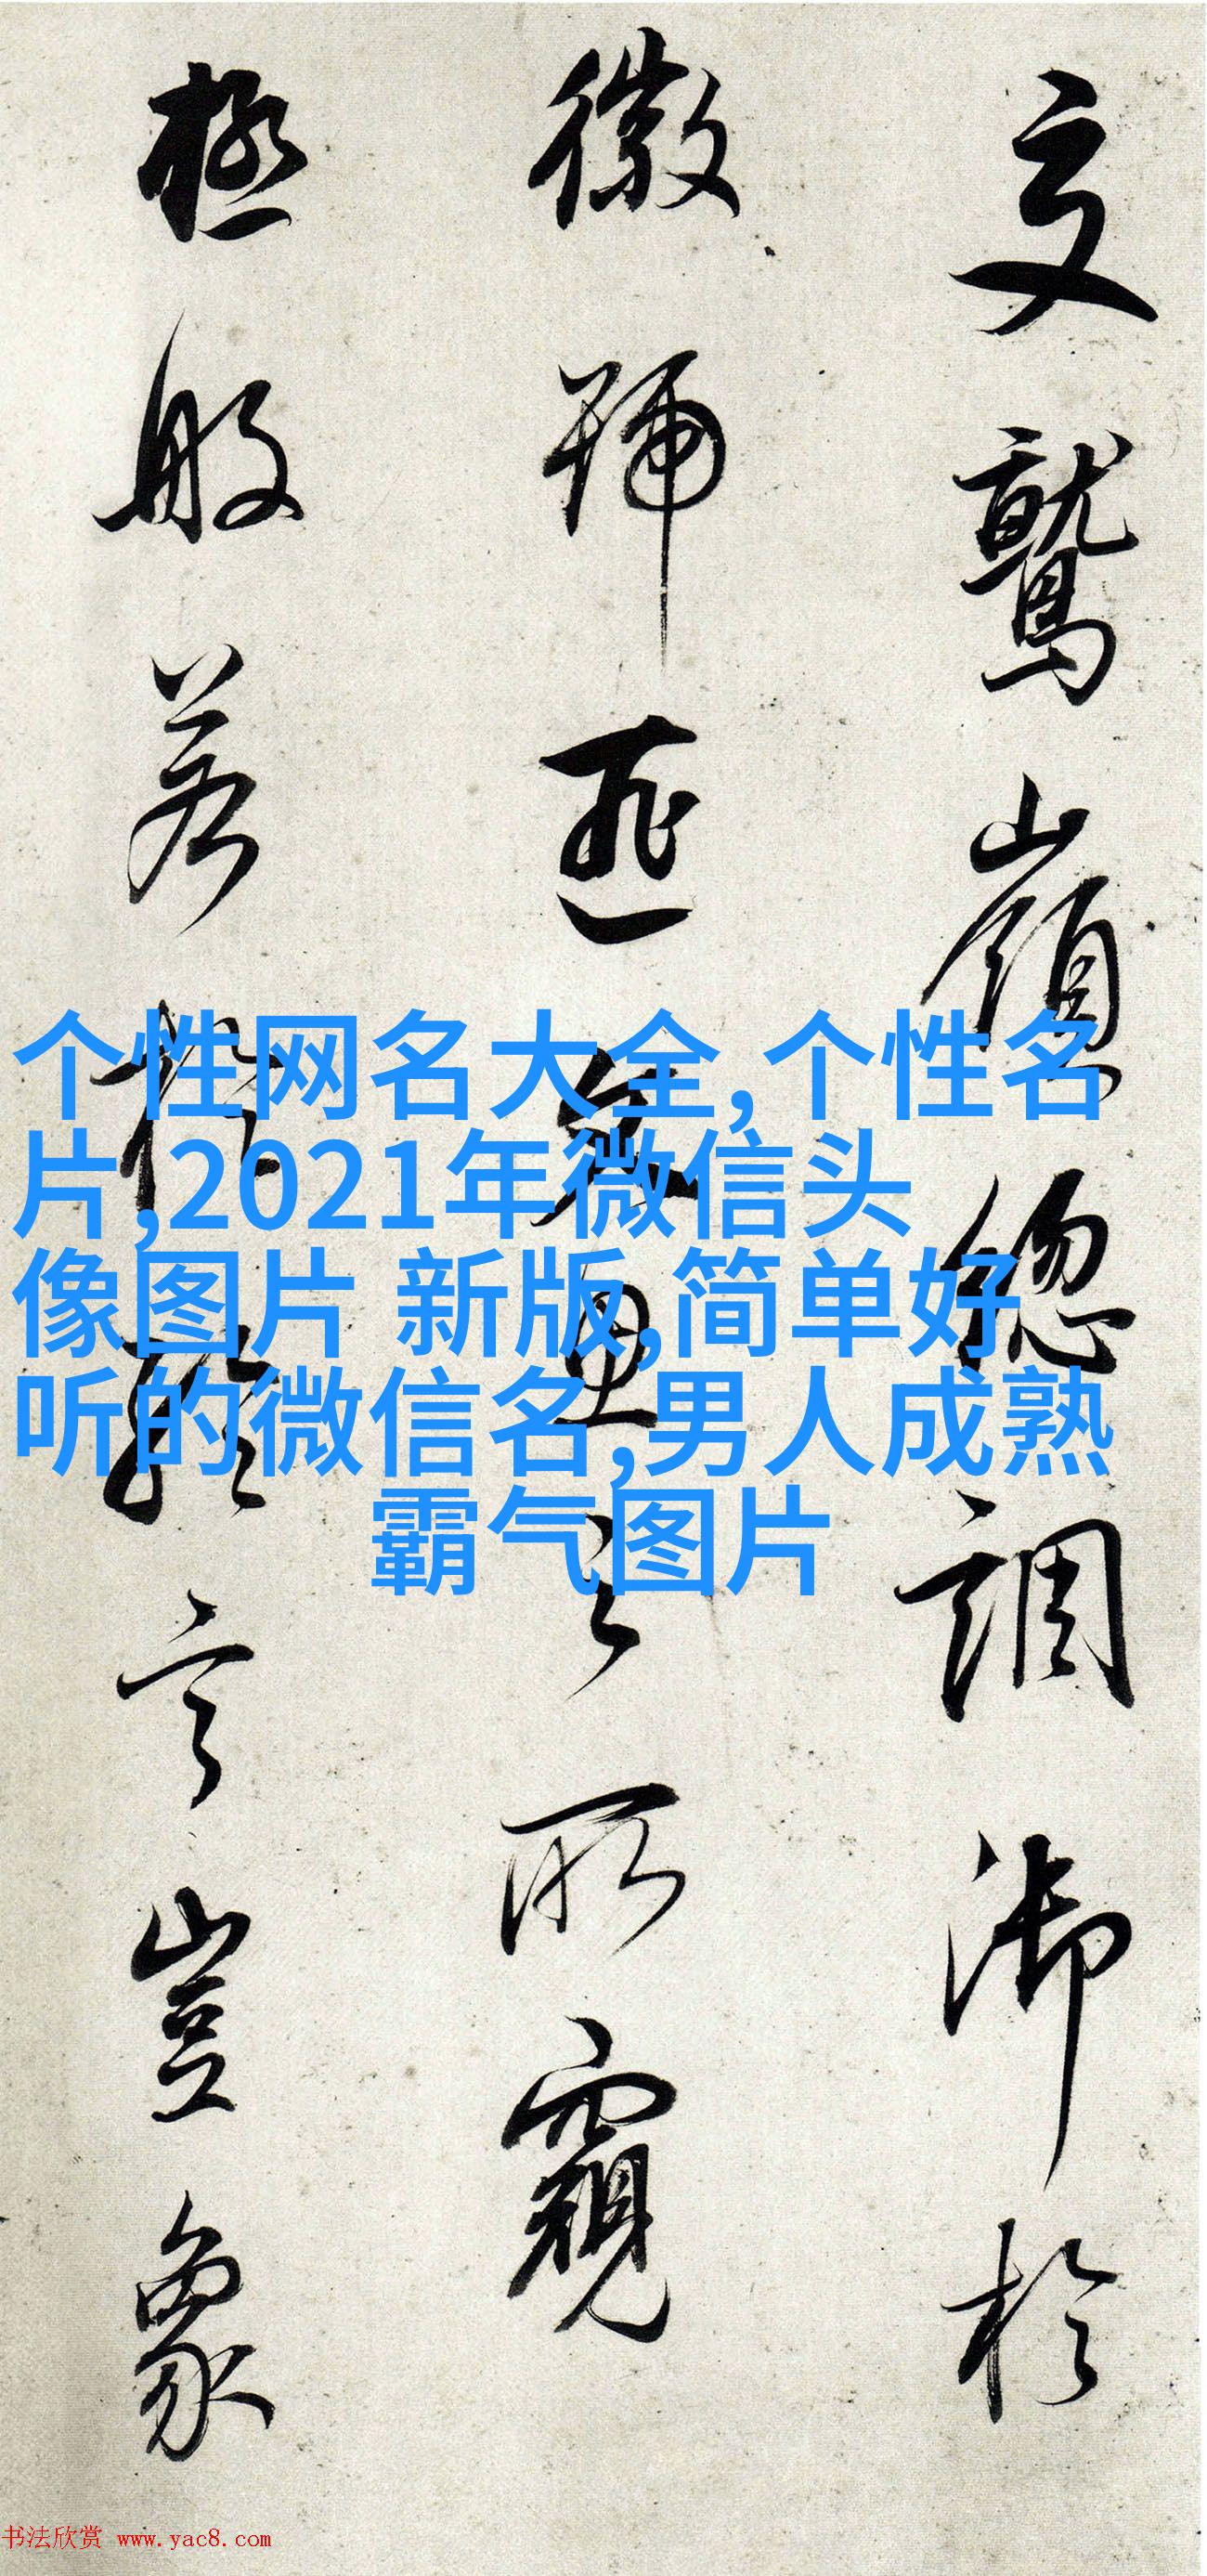 鷲嶺總調御於
徽號匪之所窺
極般若言豈象
个性网名大全,个性名
片,2021年微信头
像图片 新版,简单好
听的微信名,男人成熟
霸气图片
书法欣赏 www.yac8.com